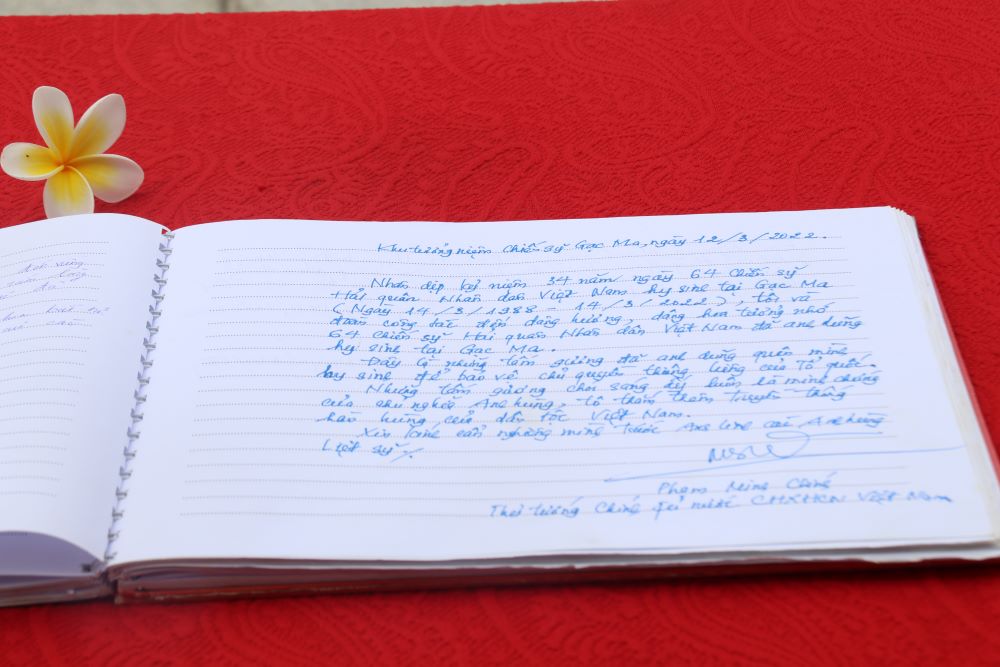 anh hùng
Khu tưởng niệm Chiến sỹ Gạc Ma, ngày 12/3/2022.
Nhân dịp kỷ niệm 34 năm ngày 64 Chiến sỹ
Hải quân Nhân dân Việt Nam hy sinh tại Gạc Ma
(Ngày 14/3/1988 - 14/3/2022), tôi và
đoàn công tác đến dâng hương, dâng hoa tưởng nhớ
64 chiến sỹ Hải quân Nhân dân Việt Nam đã anh dũng
hy sinh tại Gạc Ma.
Đây là những tấm gương đã anh dũng quên mình
hy sinh để bảo vệ chủ quyền thiêng liêng của Tổ quốc.
Những tấm gương chói sáng ấy luôn là minh chứng
của chủ nghĩa Anh hùng, tô thắm thêm truyền thống
hào hùng của dân tộc Việt Nam.
Xin kính cẩn nghiêng mình trước Anh linh các Anh hùng
Liệt sỹ./.
Phạm Minh Chính
Thủ tướng Chính phủ nước CHXHCN Việt Nam